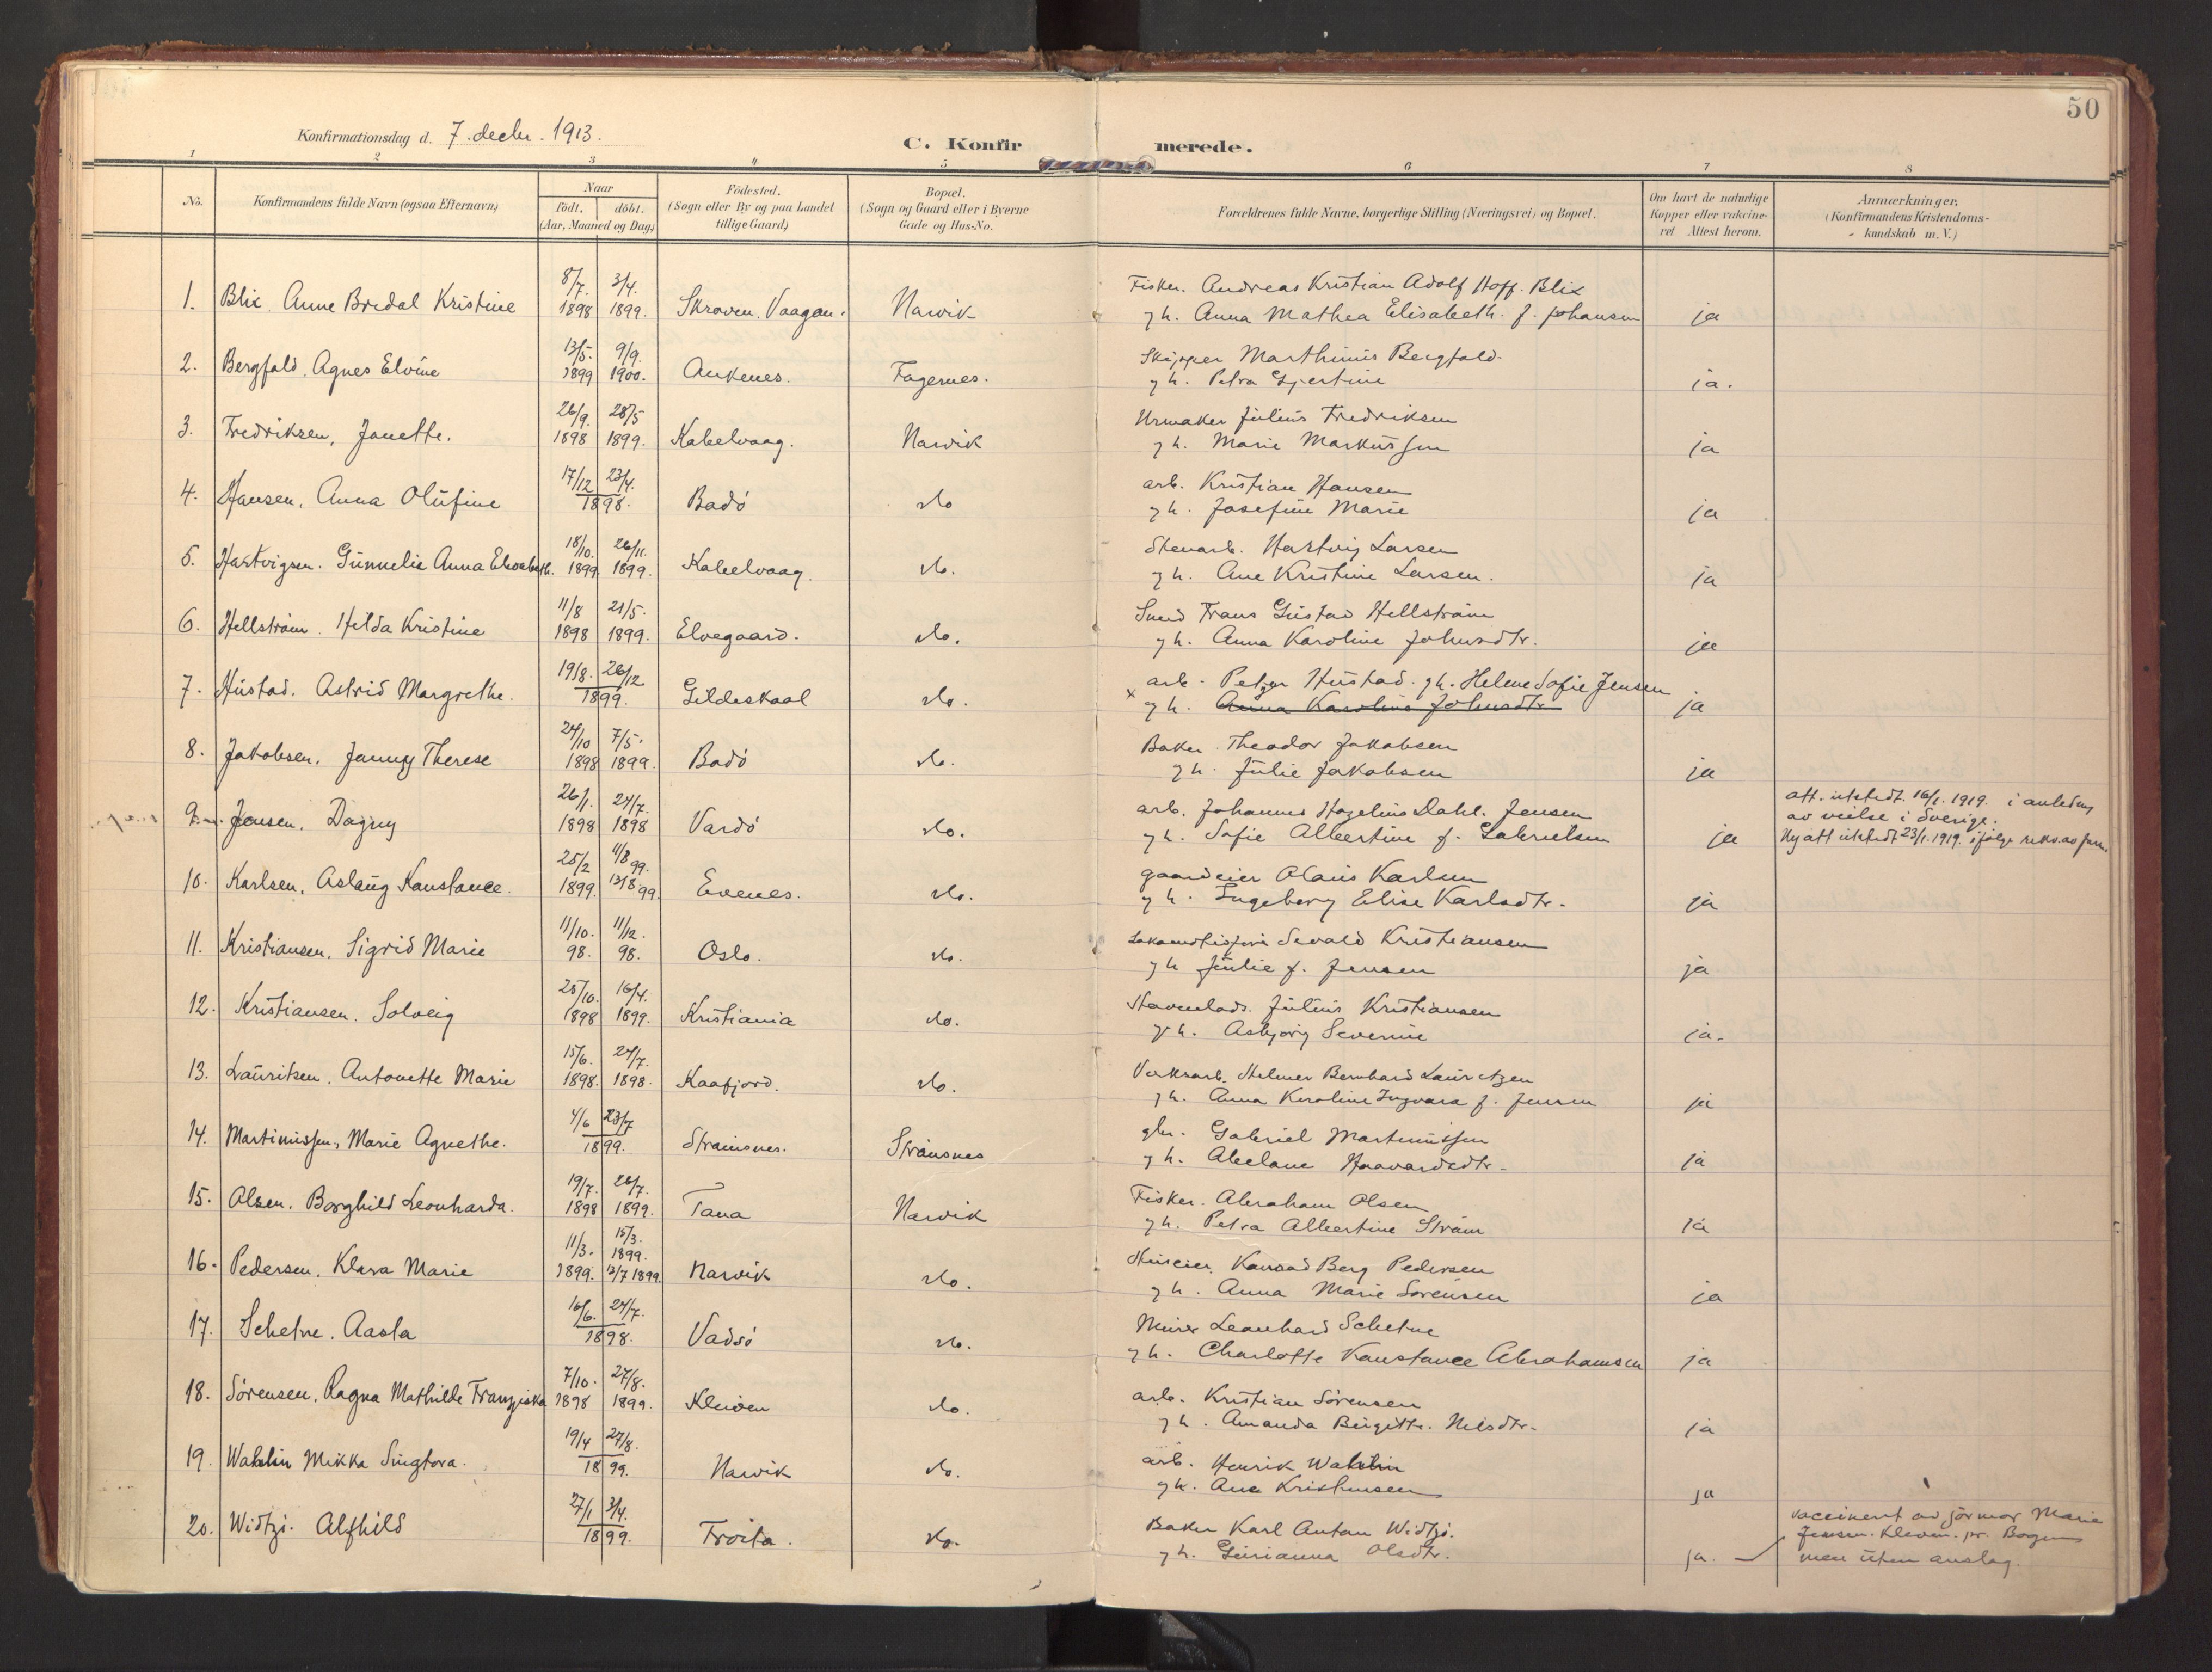 50
Konfirmationsdag d. 7. decbr. 1913.
C. Konfirmerede.
1 2 3 4 5 6 7 8
No.
Konfirmandens fulde Navn (ogsaa Efternavn)
Naar
født. døbt.
(Aar, Maaned og Dag)
Fødested.
(Sogn eller By og paa Landet
tillige Gaard)
Bopæl.
(Sogn og Gaard eller i Byerne
Gade og Hus-No.
Forældrenes fulde Navne, borgerlige Stilling (Næringsvei) og Bopæl.
Om havt de naturlige
Kopper eller vakcine-
ret Attest herom.
Anmærkninger.
(Konfirmandens Kristendoms-
kundskab m. V.)
1. Blix, Anne Bredal Kristine 8/7. 1898 3/4. 1899. Skroven. Vaagan. Narvik
Fisker. Andreas Kristian Adolf Hoff. Blix
g h. Anna Mathea Elisabeth. f. Johansen ja
2. Bergfald, Agnes Elvine 13/5. 1899 9/9. 1900. Ankenes. Fagernes.
Skipper Marthinus Bergfald
g h. Petra Gjertine ja.
3. Fredriksen, Janette. 26/9. 1898 28/5 1899. Kabelvaag. Narvik
Urmaker Julius Fredriksen
g h. Marie Markussen ja
4. Hansen, Anna Olufine 17/12 23/4. 1898. Bodö do
arb. Kristian Hansen
g h. Josefine Marie ja
5. Hartvigsen. Gunnelie Anna Elisabeth. 18/10. 1899. 26/11. 1899. Kabelvaag. do.
Stenarb. Hartvig Larsen
g h. Ane Kristine Larsen. ja
6. Hellström. Hilda Kristine 11/8 1898 21/5. 1899. Elvegaard. do.
Smed Frans Gustav Hellström
g h. Anna Karoline Johnsdtr. ja
7. Hustad. Astrid Margrethe. 19/8. 26/12 1899. Gildeskaal do.
arb. Peder Hustad. g h. Helene Sofie Jensen
x g h. Anna Karoline Johnsdtr ja
8. Jakobsen, Janny Therese 24/10 1898 7/5. 1899. Bodö do.
Baker. Theodor Jakobsen
g h. Julie Jakobsen ja
9. Jensen, Dagny 26/1. 1898 24/7. 1898 Vardö do.
arb. Johannes Hagelius Dahl. Jensen
g h. Sofie Albertine f. Gabrielsen ja
att. utstedt. 16/1. 1919. i anledng
av vielse i Sverige.
Ny att utstedt 23/1. 1919. ifølge rekv. av
10. Karlsen, Aslaug Konstance. 25/2 1899. 11/8 99. 13/8 99. Evenes. do.
gaardeier Olaus Karlsen
g h. Ingeborg Elise Karlsdtr. ja
11. Kristiansen, Sigrid Marie 11/10. 98. 11/12. 98. Oslo. do.
Sevald Kristiansen
g h Julie f. Jensen ja
12. Kristiansen. Solveig 25/10. 1898 16/4. 1899. Kristiania do.
Julius Kristiansen
g h. Asbjörg Severine ja.
13. Lauritsen. Antonette Marie 15/6. 1898. 24/7. 1898. Kaafjord. do.
Verksarb. Helmer Bernhard Lauritzen
g h. Anna Karoline Ingvara f. Jensen ja
14. Martinussen, Marie Agnethe. 4/6 23/7 1899. Straumsnes. Straumsnes
gbr. Gabriel Martinussen
g h. Abelone Haavardsdtr. ja
15. Olsen. Borghild Leonharda. 19/7. 1898 26/7. 1899. Tana Narvik
Fisker. Abraham Olsen
g h. Petra Albertine Ström ja
16. Pedersen. Klara Marie 11/3. 1899. 15/3. 1899. 13/7 1899. Narvik do.
Huseier. Konrad Berg Pedersen
g h. Anna Marie Sørensen ja
17. Schetne. Aasta 16/6. 24/7. 1898. Vadsö do.
Murer Leonhard Schetne
g h. Charlotte Konstance Abrahamsen ja
18. Sörensen, Ragna Mathilde Franziska 7/10. 1898 27/8. 1899. Kleiven do.
arb. Kristian Sörensen
g h. Amanda Birgitte. Nilsdtr. ja
19. Wahlin Mikka Singtora. 19/4 27/8. 1899. Narvik do.
arb. Henrik Wahlin
g h. Ane Kristensen ja
20. Widtzö. Alfhild 27/1 3/4. 1899. Frosta. do.
Baker Karl Anton Widtzö.
g h. Gurianna Olsdtr. ja.
vaccinert av jörmor Marie
Jensen. Kleven. pr. Bogen
men uten anslag.